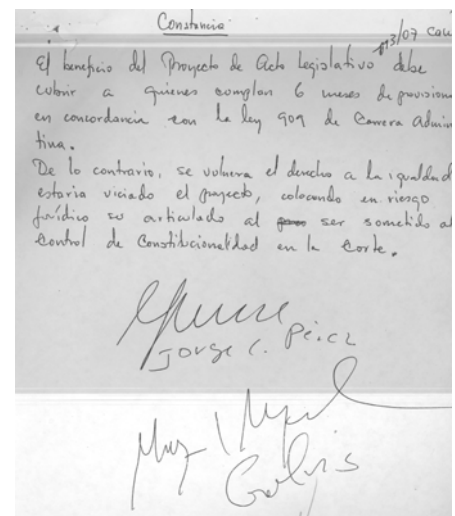 Constancia
013/07 Cam
El beneficio del Proyecto de Acto Legislativo debe
cubrir a quienes cumplan 6 meses de provision
en concordancia con la ley 909 de Carrera Admin
tiva.
De lo contrario, se vulnera el derecho a la igualdad
estaria viciado el proyecto, colocando en riesgo
jurídico su articulado al ser sometido al
Control de Constitucionalidad en la Corte.
Jorge C. Pérez
Galvis